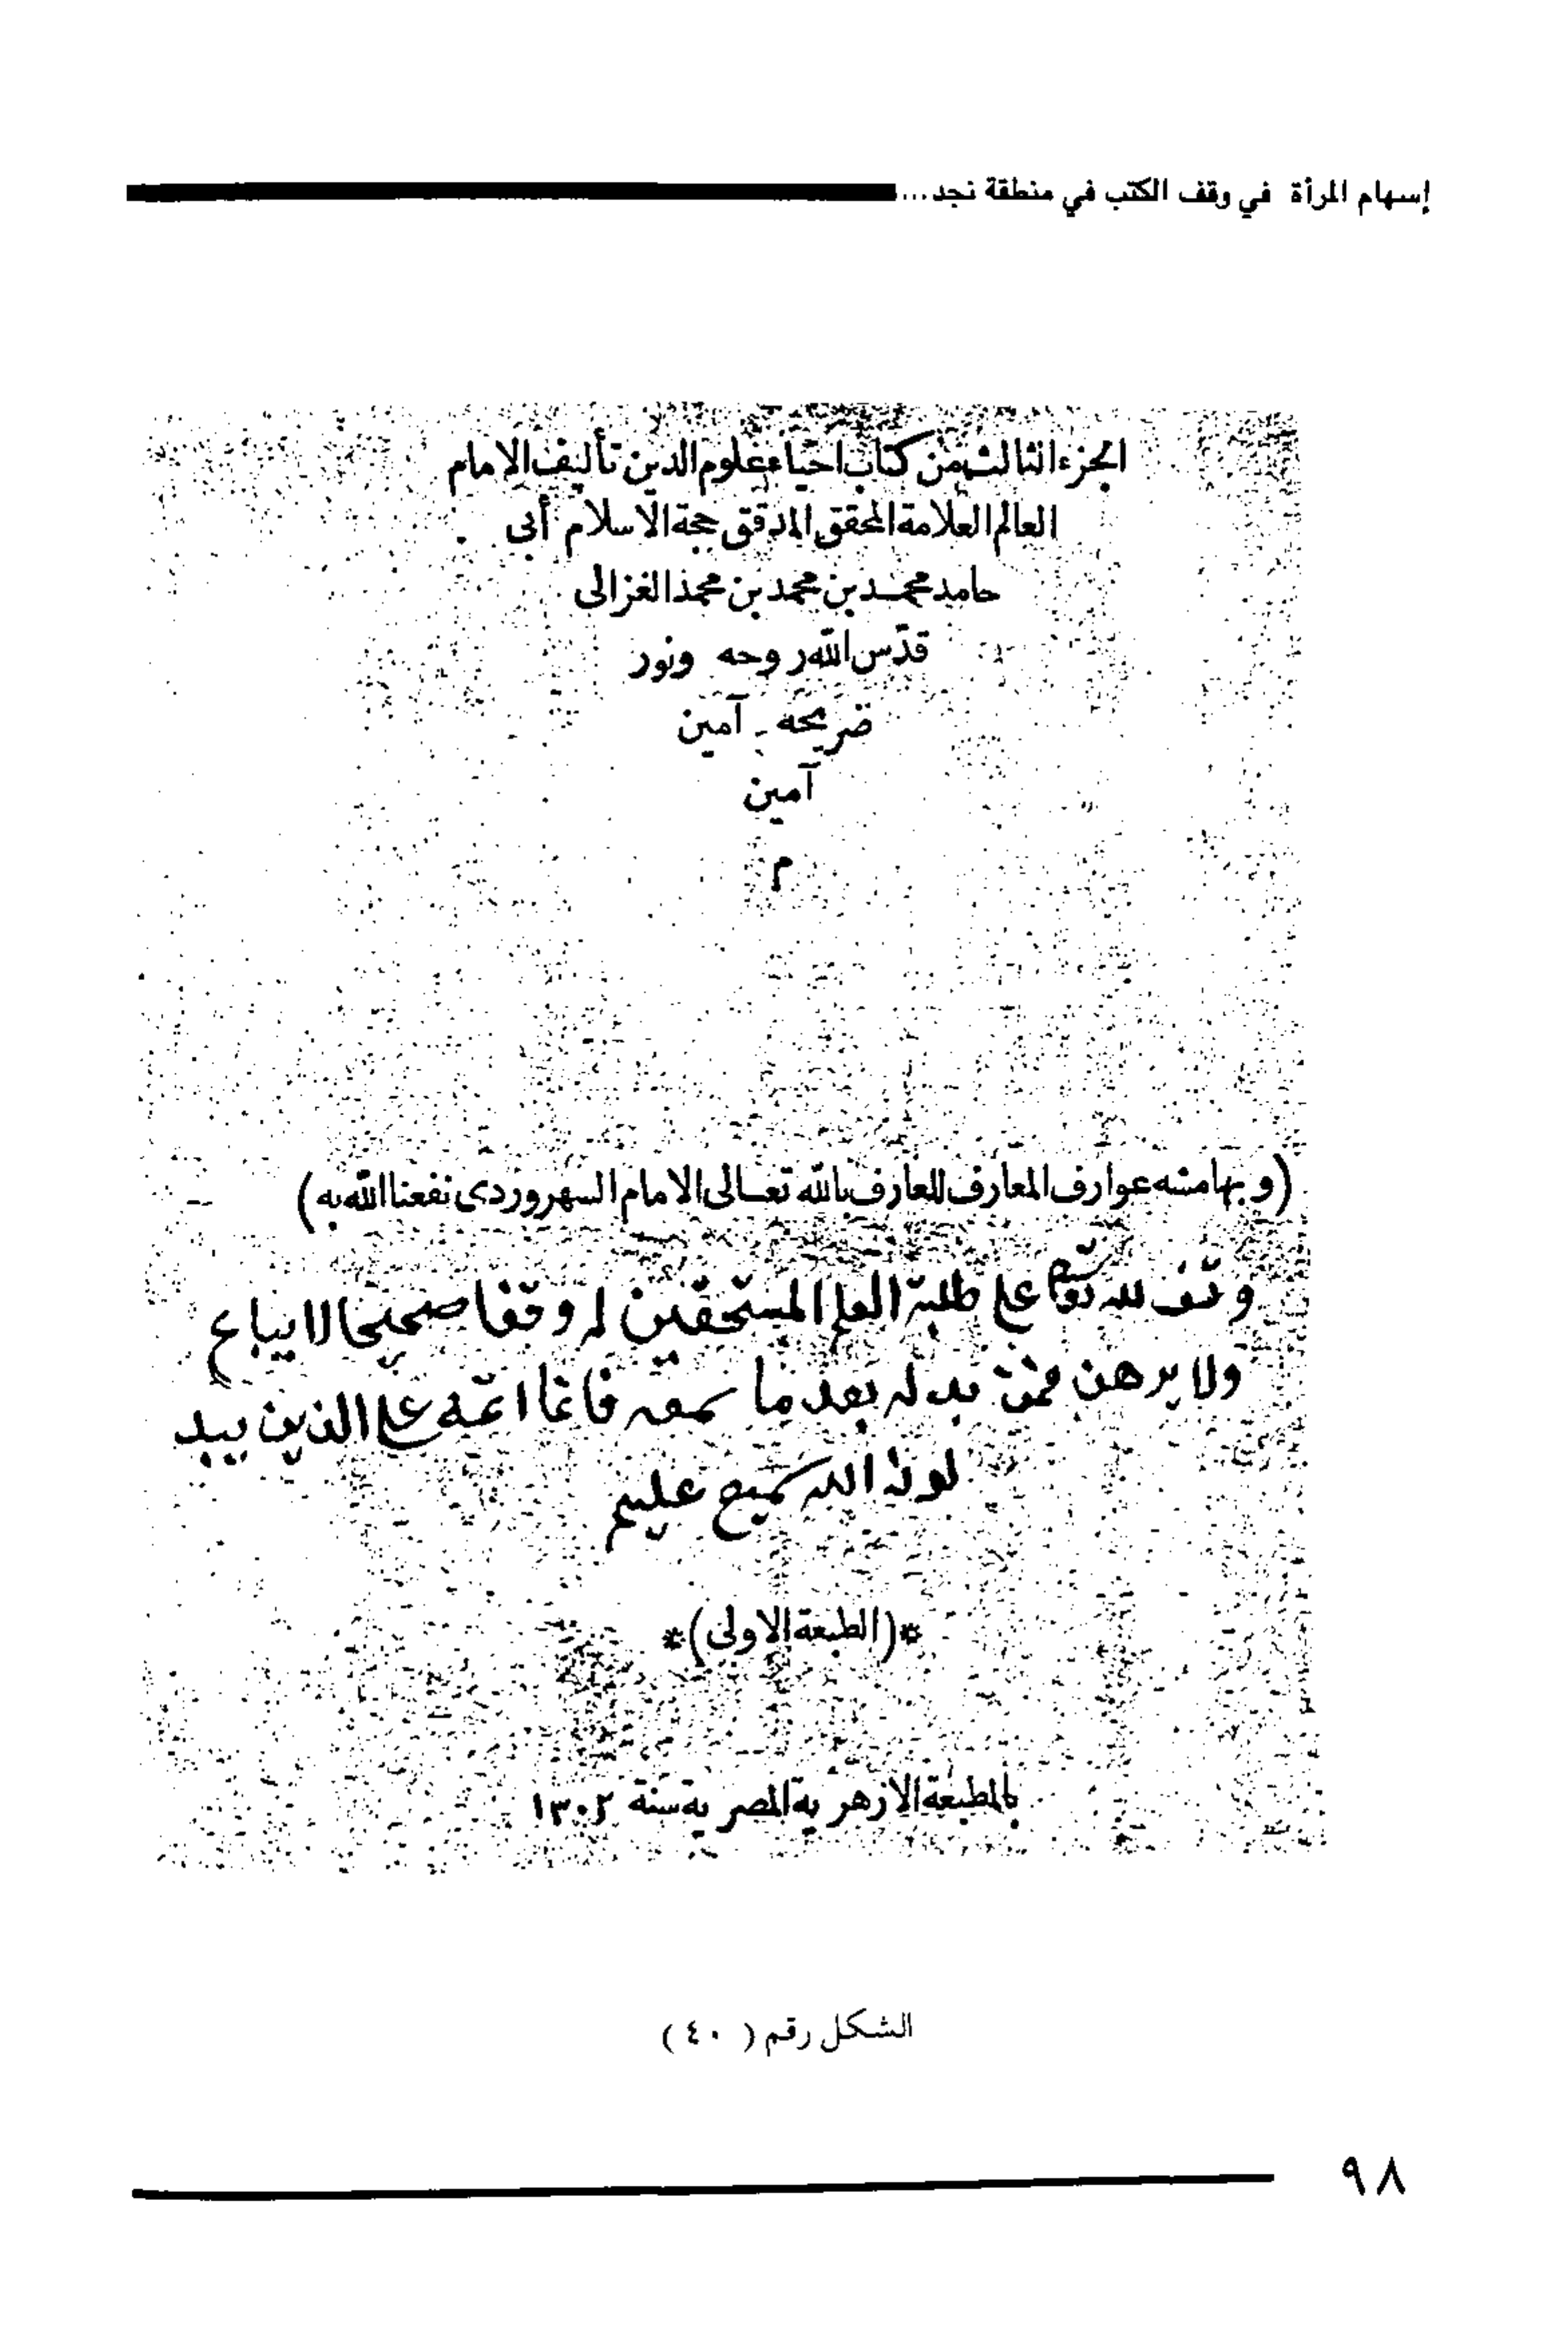 إسهام المرأة في وقف الكتب في منطقة نجد ...
الجزء الثالث من كتاب احياء علوم الدين تأليف الامام
العالم العلامة المحقق المدقق حجة الاسلام أبى
حامد محمد بن محمد بن محمد الغزالى
قدّس الله روحه ونور
ضريحه آمين
آمين
م
(وبهامشه عوارف المعارف للعارف بالله تعالى الامام السهروردى نفعنا الله به)
وقف لله تعالى على طلبة العلم المستحقين له وقفا صحيحا لا يباع
ولا يرهن فمن بدله بعد ما سمعه فانما اثمه على الذين يبد
لونه ان الله سميع عليم
*(الطبعة الاولى)*
بالمطبعة الازهرية المصرية سنة ١٣٠٢
الشكل رقم ( ٤٠ )
٩٨